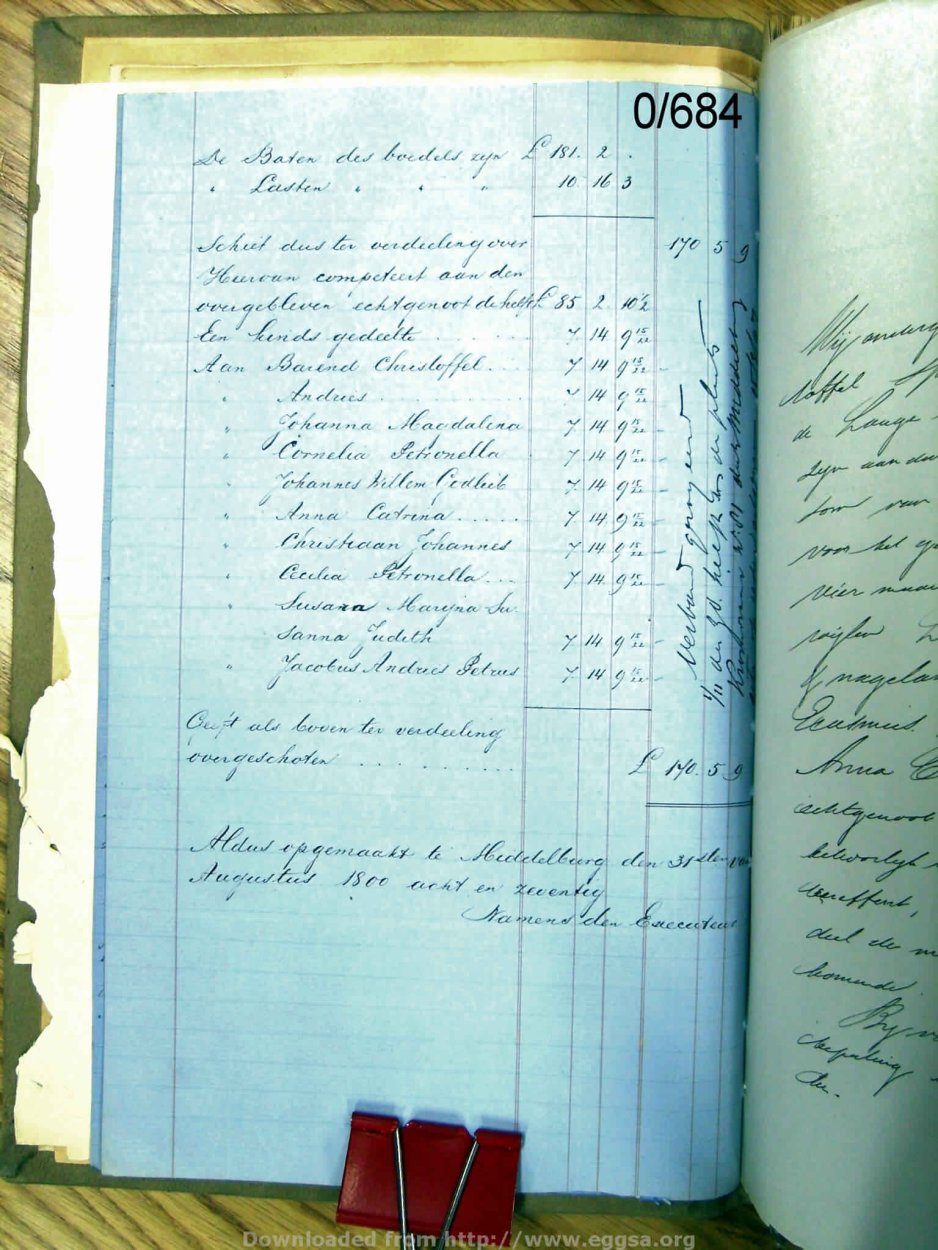 0/684
De Baten des boedels zyn £ 181. 2 .
" Lasten " " " 10. 16 3
Schiet dus ter verdeeling over 170 5 9
Hiervan competeert aan den
overgebleven echtgenoot de helft £ 85 2. 10 1/2
Een kinds gedeelte . . . . . . 7 14 9 15/22
Aan Barend Christoffel . . . 7 14 9 15/22
" Andries . . . . . . . . 7 14 9 15/22
" Johanna Magdalena 7 14 9 15/22
" Cornelia Petronella 7 14 9 15/22
" Johannes Willem Godlieb 7 14 9 15/22
" Anna Catrina . . . . . 7 14 9 15/22
" Christiaan Johannes 7 14 9 15/22
" Cecilia Petronella . . . 7 14 9 15/22
" Susanna Maryna Su-
sanna Judith 7 14 9 15/22
" Jacobus Andries Petrus 7 14 9 15/22
Geeft als boven ter verdeeling
overgeschoten . . . . . . . . . . £ 170. 5 9
Aldus opgemaakt te Middelburg den 31sten van
Augustus 1800 acht en zeventig
Namens den Executeur
1/11 der
Wij
de Lange
zyn aan
van
voor het
vier
Erasmus
Anna
echtgenoot
behoorlyk
deel de
komende
By
Downloaded from http://www.eggsa.org